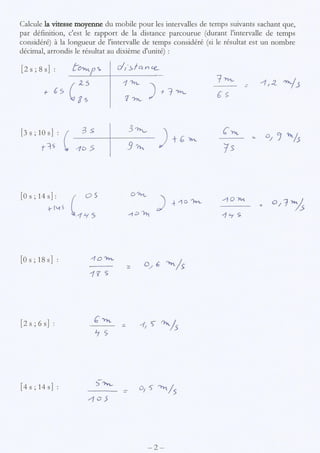 Calcule la vitesse moyenne du mobile pour les intervalles de temps suivants sachant que,
par définition, c'est le rapport de la distance parcourue (durant l'intervalle de temps
considéré) à la longueur de l'intervalle de temps considéré (si le résultat est un nombre
décimal, arrondis le résultat au dixième d'unité) :
[2 s ; 8 s] : temps distance
+ 6 s 2 s 1 m + 7 m 7 m / 6 s = 1,2 m/s
8 s 8 m
[3 s ; 10 s] : 3 s 3 m + 6 m 6 m / 7 s = 0,9 m/s
+7s 10 s 9 m
[0 s ; 14 s] : 0 s 0 m + 10 m 10 m / 14 s = 0,7 m/s
+14s 14 s 10 m
[0 s ; 18 s] : 10 m / 18 s = 0,6 m/s
[2 s ; 6 s] : 6 m / 4 s = 1,5 m/s
[4 s ; 14 s] : 5 m / 10 s = 0,5 m/s
– 2 –